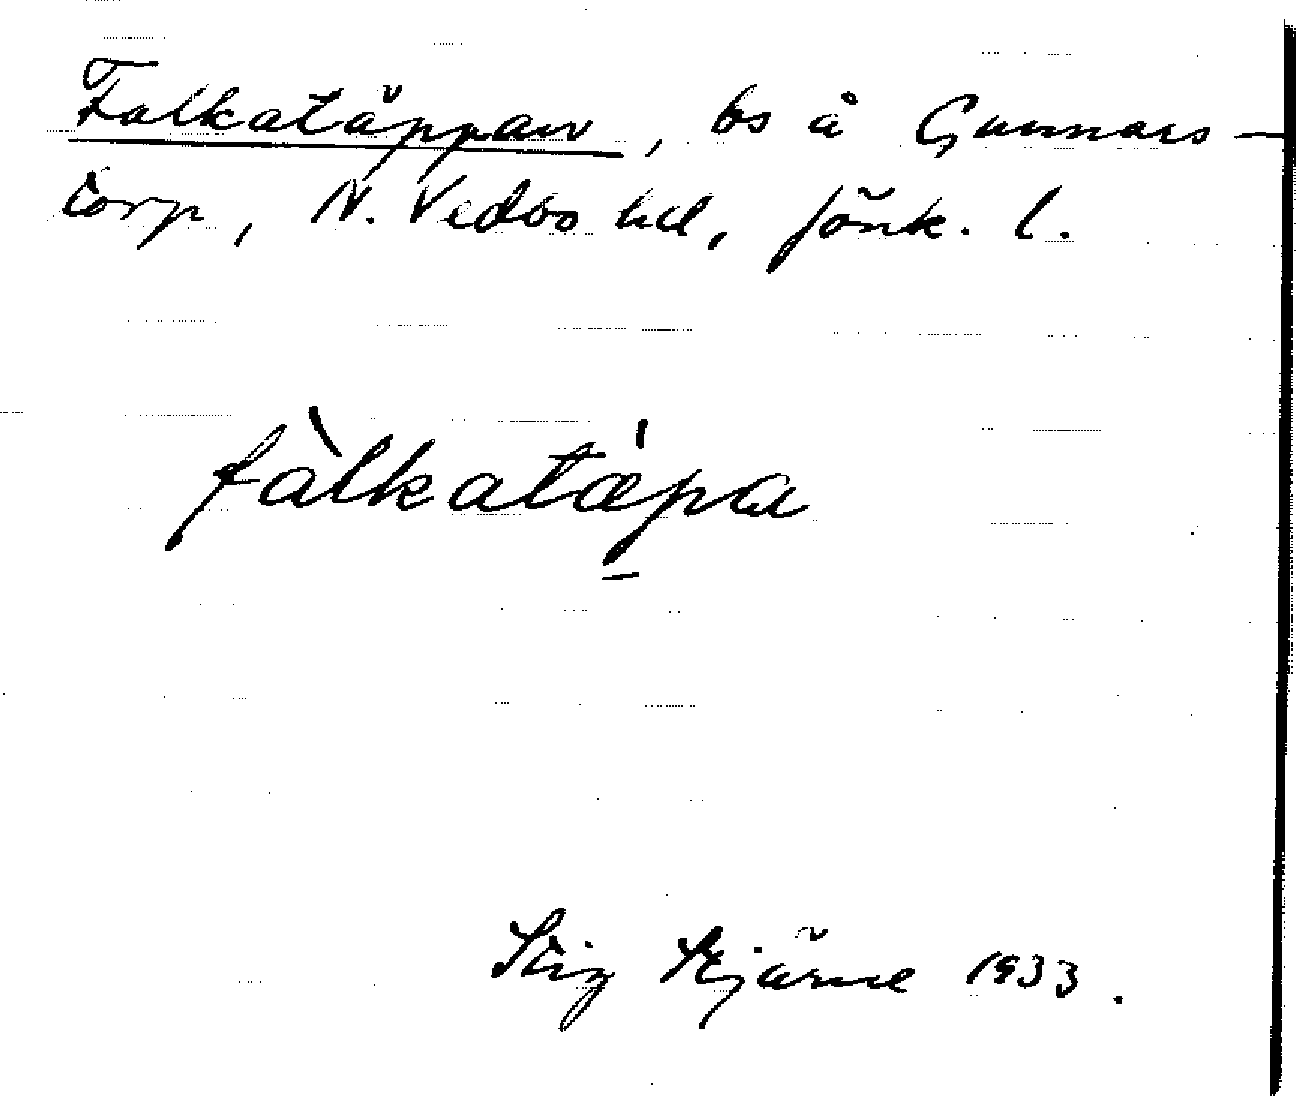 Falkatäppan, bs å Gunnars-
torp, N. Vedbo hd, Jönk. l.
fàlkatǽpa
Stig Stjärne 1933.